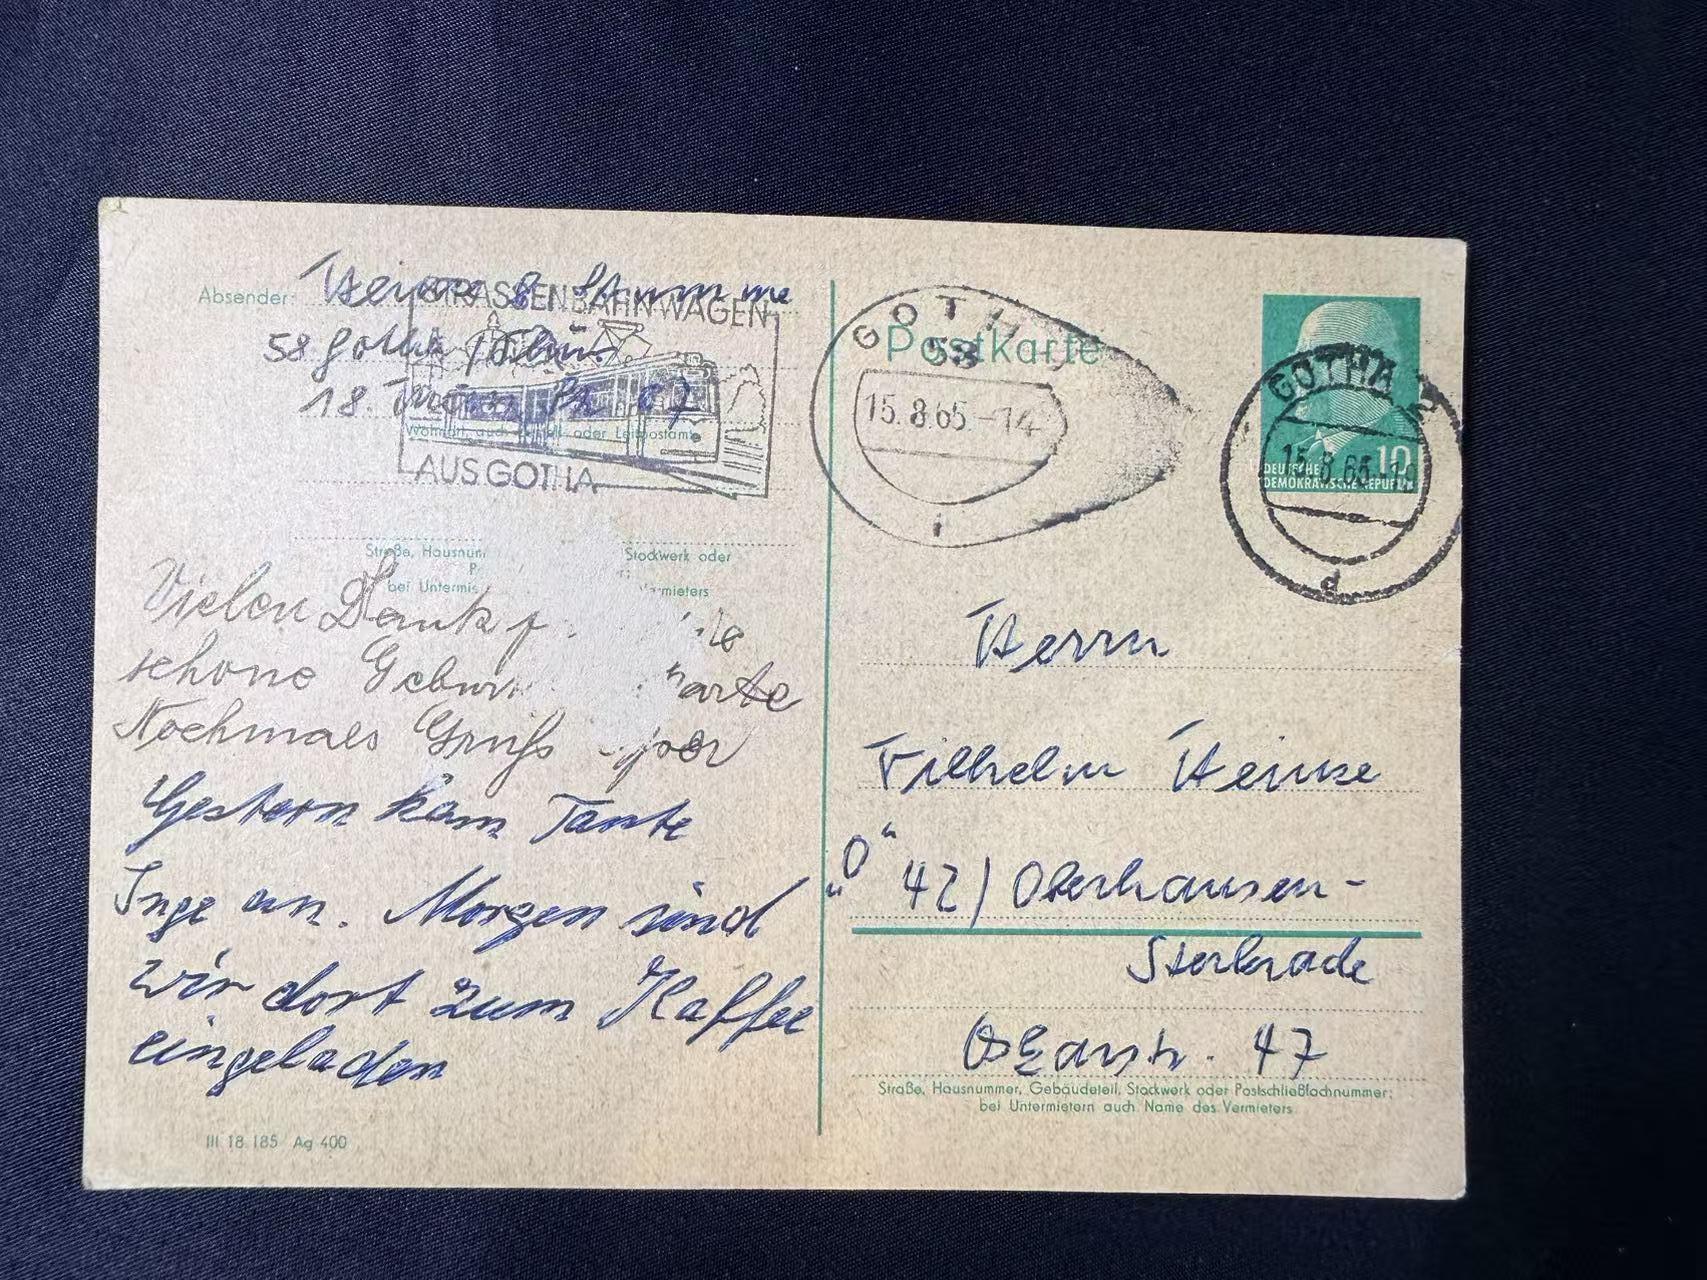 Absender:
58 Gotha / Thür.
18. 07
STRASSENBAHNWAGEN
AUS GOTHA
Wohnort, auch Zustell- oder Leitpostamt
Straße, Hausnum Stockwerk oder
bei Untermie rmieters
Vielen Dank f
schöne Gebur arte
Nochmals Gruß
Gestern kam Tante
Inge an. Morgen sind
wir dort zum Kaffee
eingeladen
III 18 185 Ag 400
Postkarte
GOTHA
58
15.8.65.-14
i
GOTHA 2
15.8.65
d
10
DEUTSCHE
DEMOKRATISCHE REPUBLIK
Herrn
Wilhelm
"O" 42 / Oberhausen-
Sterkrade
47
Straße, Hausnummer, Gebäudeteil, Stockwerk oder Postschließfachnummer;
bei Untermietern auch Name des Vermieters